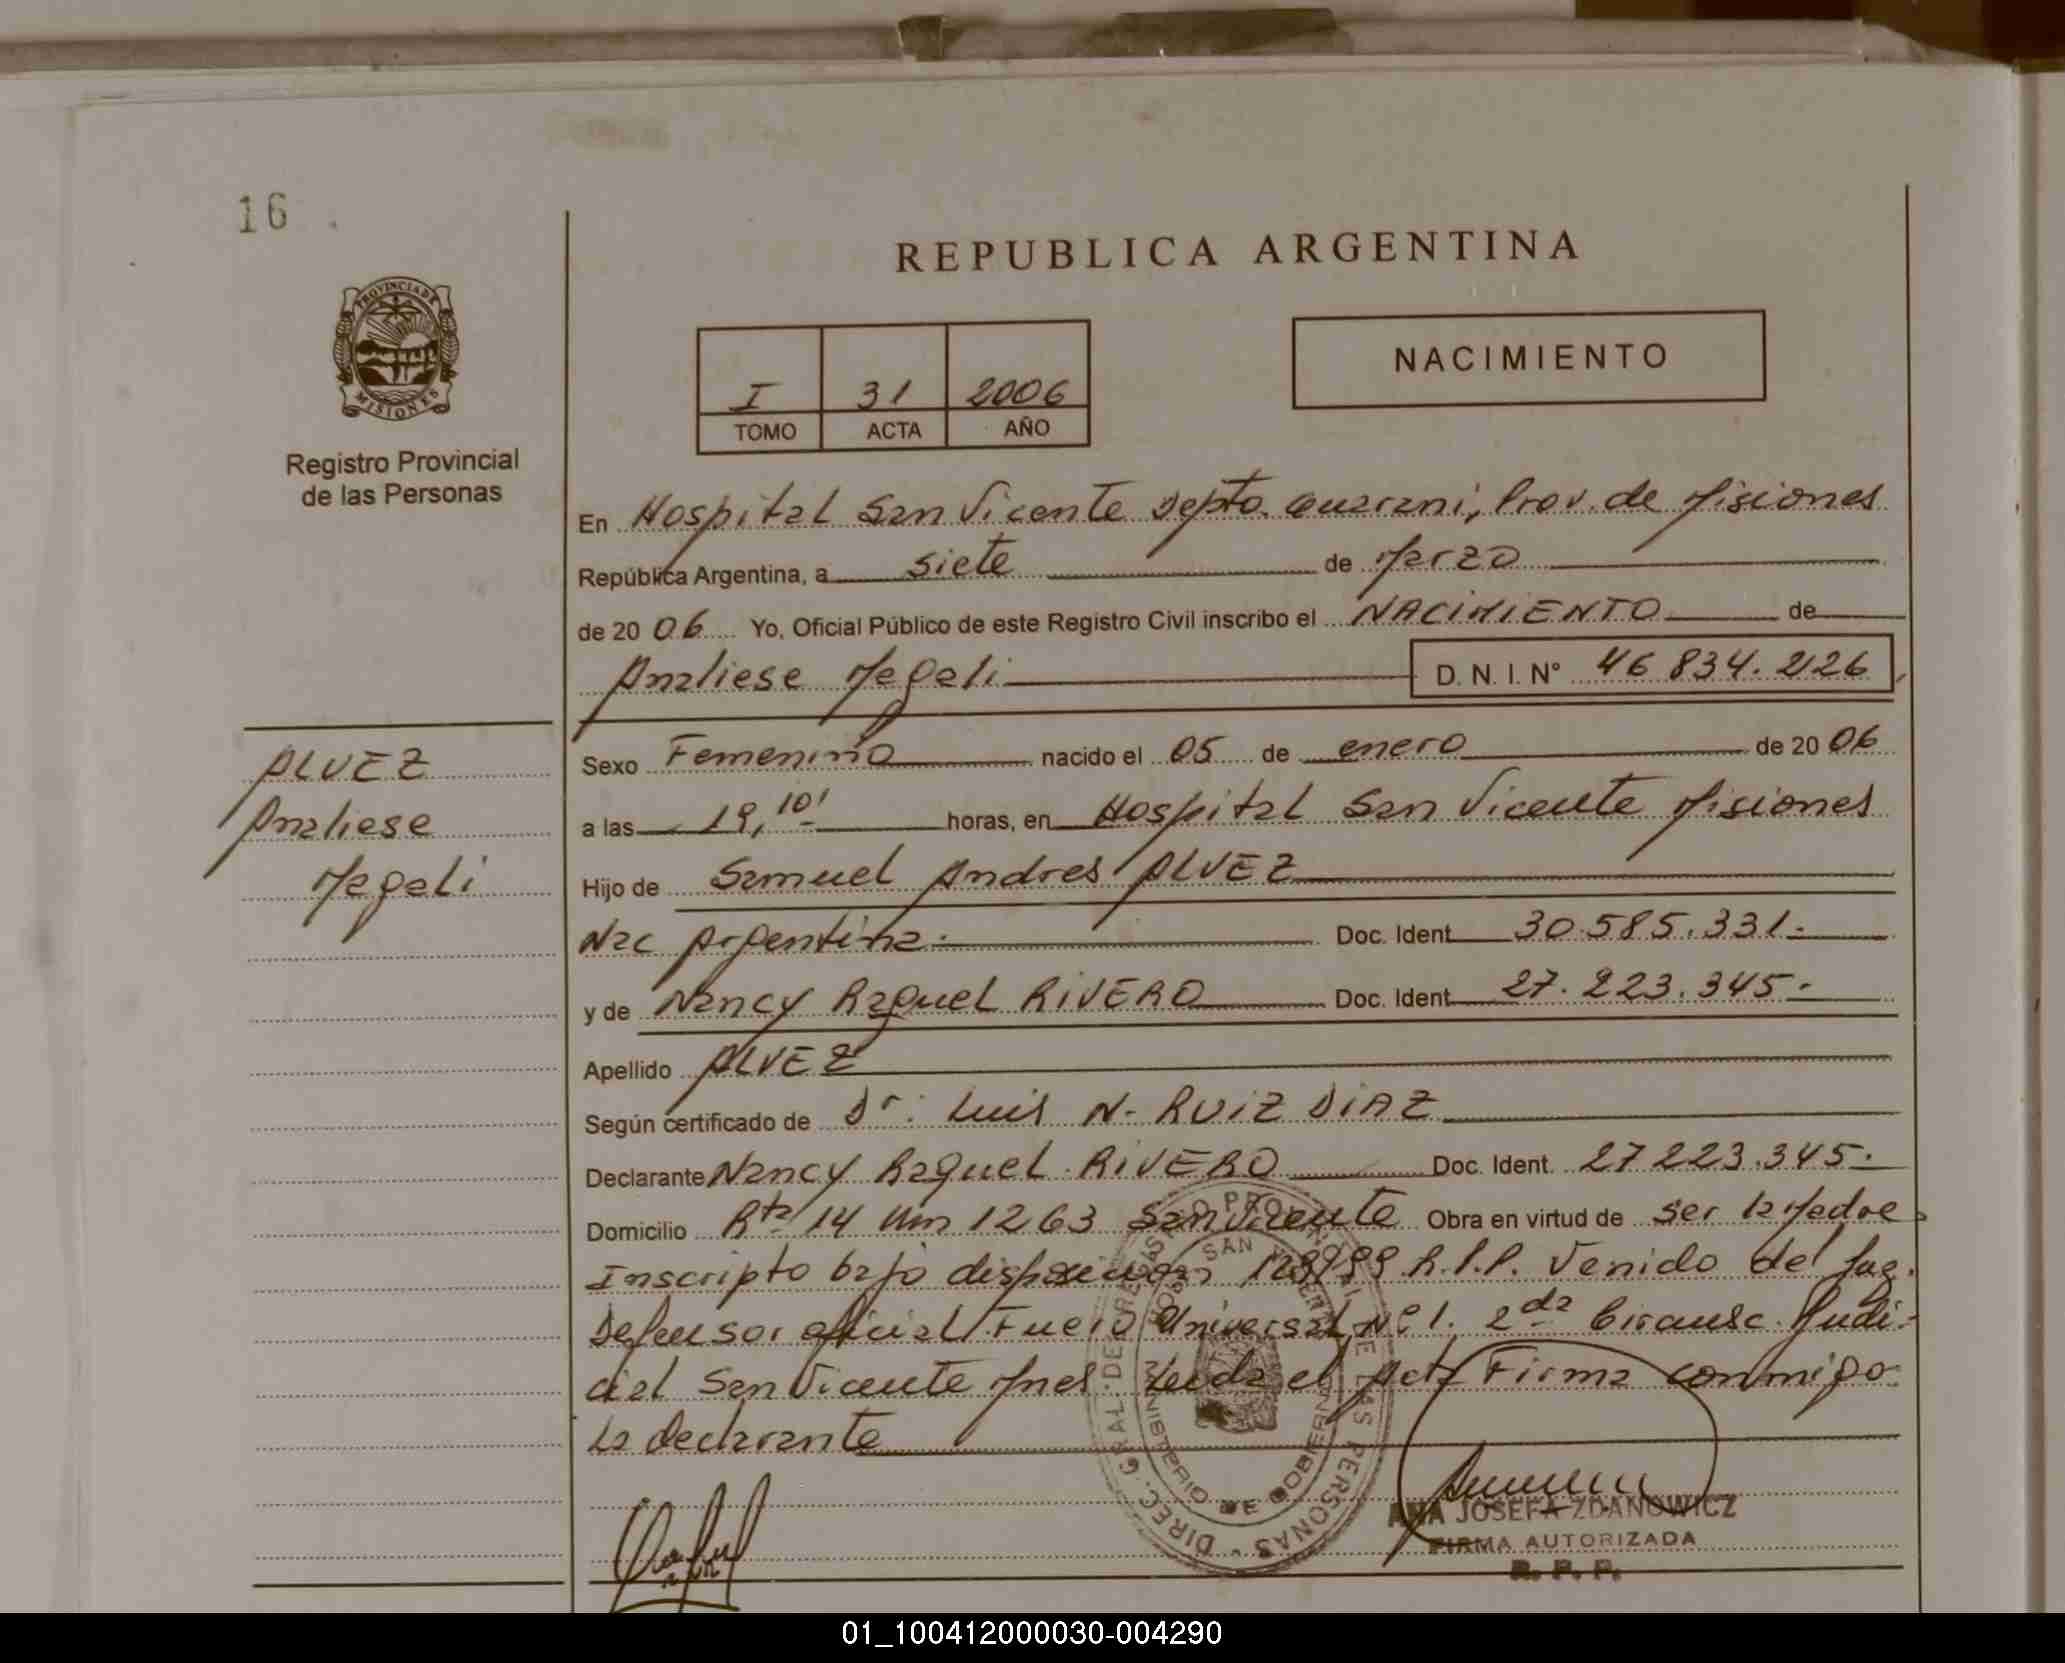 16
REPUBLICA ARGENTINA
PROVINCIA DE
MISIONES
Registro Provincial
de las Personas
I 31 2006
TOMO ACTA AÑO
NACIMIENTO
En Hospital San Vicente Depto. Guarani, Prov. de Misiones
República Argentina, a siete de Marzo
de 2006 Yo, Oficial Público de este Registro Civil inscribo el NACIMIENTO de
Analiese Magali D. N. I. N° 46 834. 226
ALVEZ
Analiese
Magali
Sexo Femenino nacido el 05 de enero de 2006
a las 19,10' horas, en Hospital San Vicente Misiones
Hijo de Samuel Andres ALVEZ
Nac Argentina. Doc. Ident 30.585.331.-
y de Nancy Raquel RIVERO Doc. Ident 27.223.345.-
Apellido ALVEZ
Según certificado de Dr. Luis N. RUIZ DIAZ
Declarante Nancy Raquel RIVERO Doc. Ident. 27 223.345.-
Domicilio Rta 14 Km 1263 San Vicente Obra en virtud de ser la Madre
Inscripto bajo disposicion R.P.P. Venido del Juz.
Defensor oficial Fuero Universal N° 1. 2da Circunsc. Judi-
cial San Vicente Mnes Leida el Acta Firma conmigo
la declarante
DIREC. GRAL. DE REGISTRO PROVINCIAL DE LAS PERSONAS
MINISTERIO DE GOBIERNO
SAN VICENTE
ANA JOSEFA ZDANOWICZ
FIRMA AUTORIZADA
R. P. P.
01_100412000030-004290